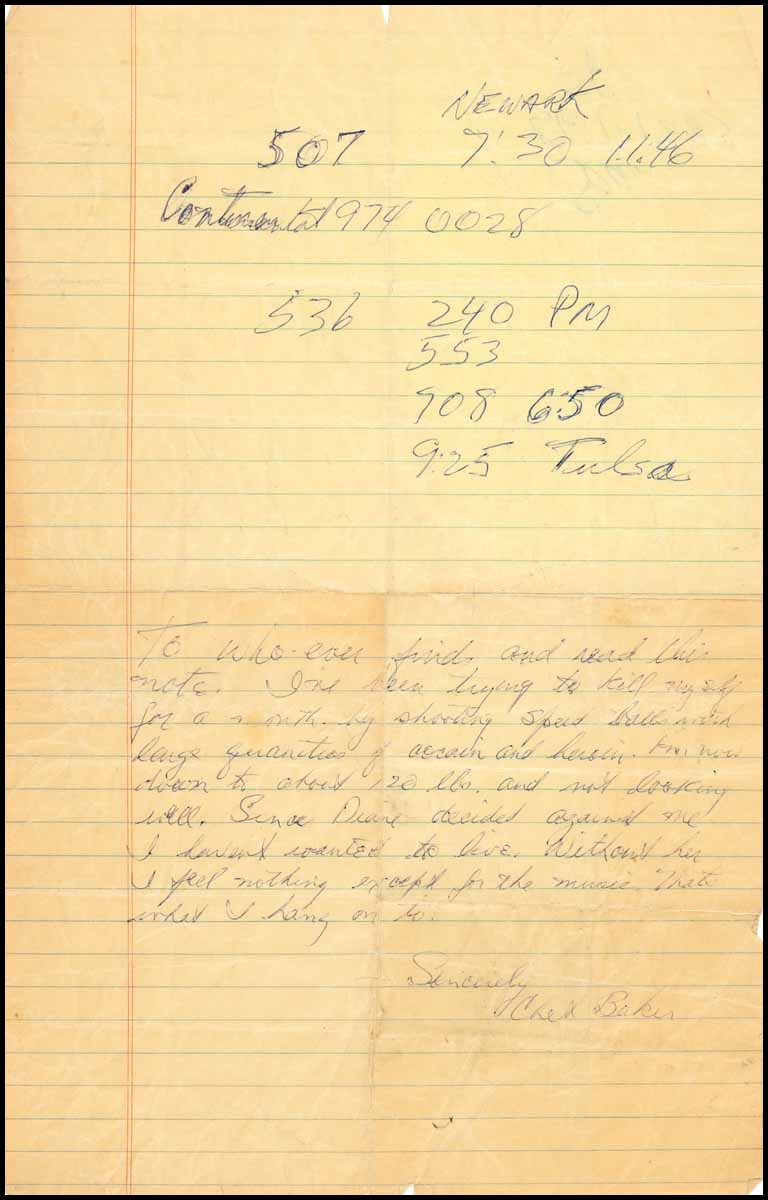 NEWARK
507 7:30 11:46
Continental 974 0028
536 240 PM
553
908 6:50
9:25 Tulsa
To who-ever finds and read this
note. I've been trying to kill myself
for a month. by shooting speed balls with
large quanities of cocain and heroin. I'm now
down to about 120 lbs. and not looking
well. Since Diane decided against me
I havent wanted to live. Without her
I feel nothing except for the music. Thats
what I hang on to.
Sincerely
Chet Baker